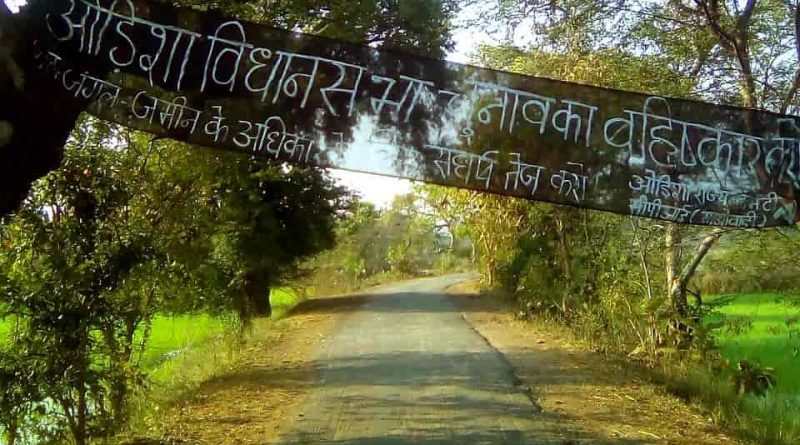 ओडिशा विधानसभा चुनाव का बहिष्कार करो
जल-जंगल-जमीन के अधिकार के लिए संघर्ष तेज करो
ओडिशा राज्य कमेटी
सीपीआई (माओवादी)